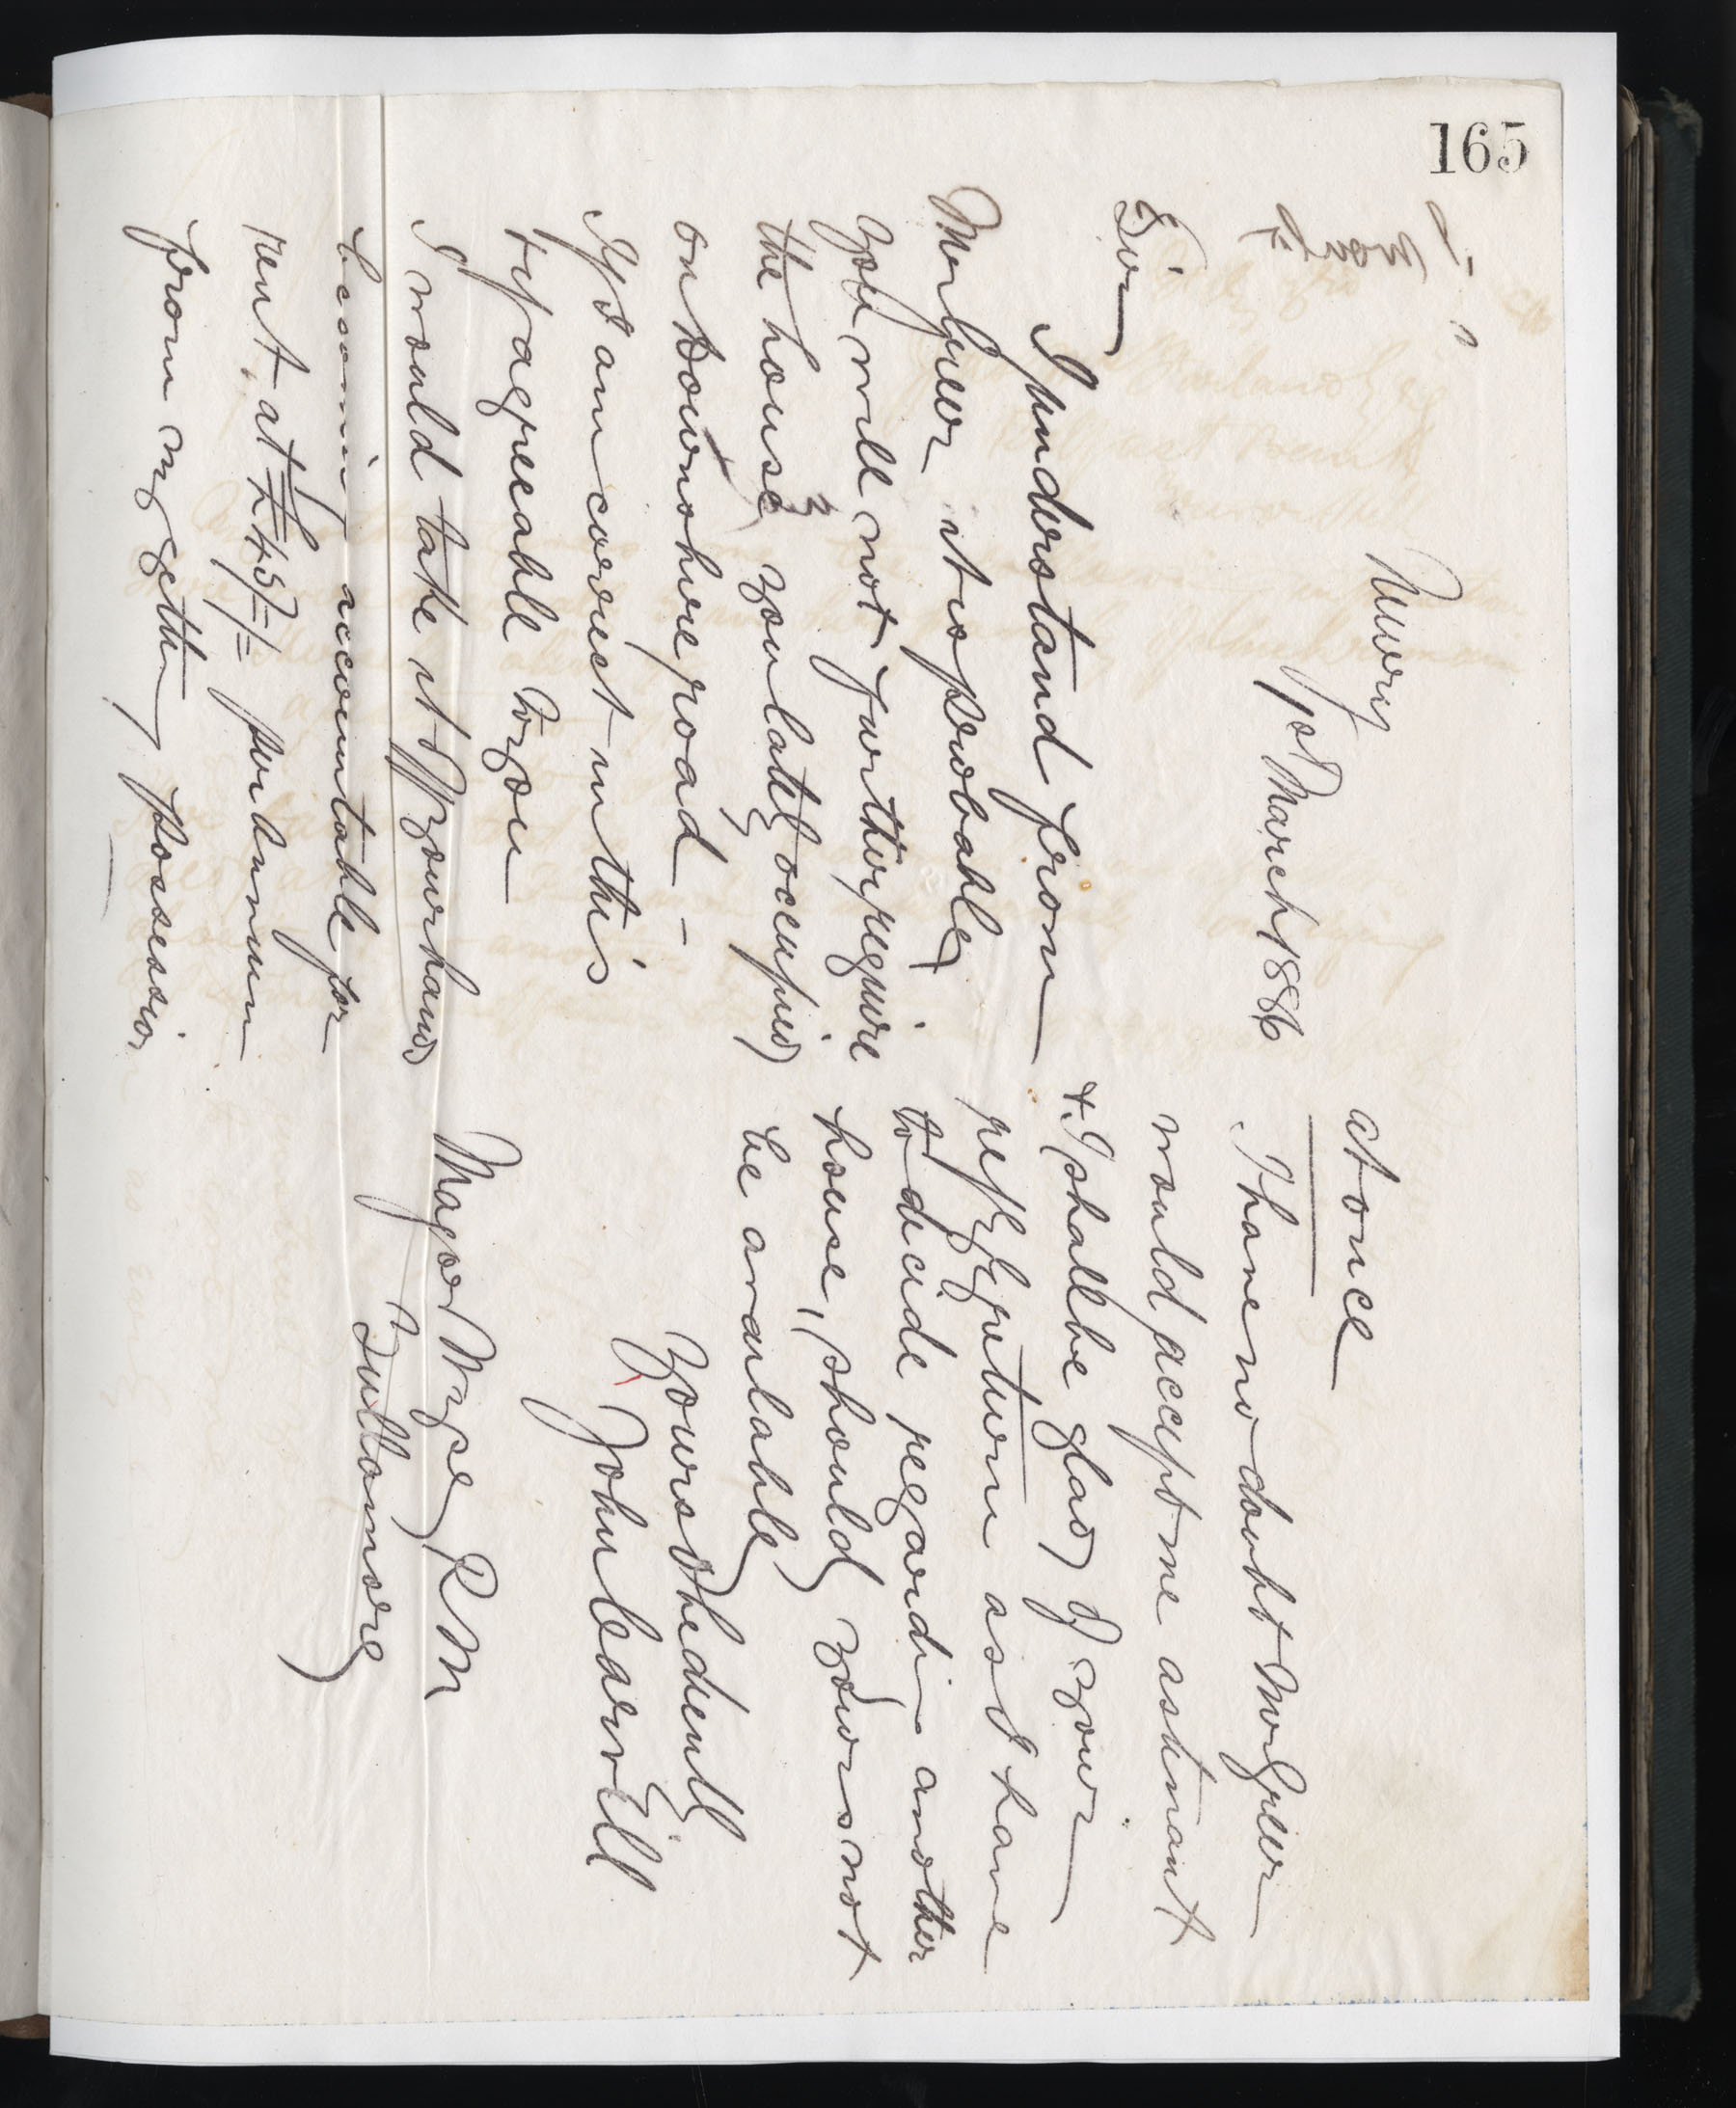 165
Newry
1st March 1886
Sir
I understand from
Mr Greer it is probable
you will not further require
the house you lately occupied
on Downshire road -
If I am correct in this
& if agreeable to you
I would take it off your hands
becoming accountable for
rent, at £45/-/- per annum
from my getting possession
at once
I have no doubt Mr Greer
would accept me as tenant
& I shall be glad of your
reply by return as I have
to decide regarding another
house, should yours not
be available
Yours obediently
John Carvill
Major Wyse, R M
Tullamore